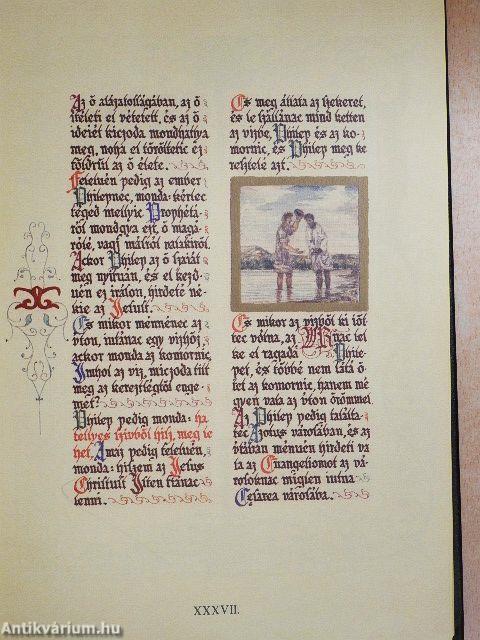 Az ő alázatosságában, az ő
itéleti el vétetett, és az ő
ideiét kicsoda mondhattya
meg, noha el töröltetic éz
földrül az ő élete.
Felelvén pedig az ember
Philepnec, monda: kérlec
téged mellyic Prophéta-
ról mondgya ezt, ő maga-
róle, vagy másról valakiről
Ackor Philep az ő száiát
meg nyituán, és el kezd-
uén ez íráson, hirdeté né-
kie az Jesust.
És mikor mennénec az
vton, iutánac egy vizhöz,
ackor monda az komornic,
Imhol az viz, miczoda tilt
meg az kereztségtől enge-
met?
Philep pedig monda: ha
tellyes szivből hisz, meg le-
het. Amaz pedig feleluén,
monda: hiszem az Jesus
Christust Isten fiánac
lenni.
És meg állata az szekeret,
és le szállánac mind ketten
az vizbe, Philep és az ko-
mornic, és Philep meg ke-
resztelé azt.
És mikor az vizből ki iőt-
tec vólna, az Urnac lel-
ke el ragadá Phile-
pet, és többé nem látá ő-
tet az komornic, hanem mé-
gyen vala az úton örömmel
Az Philep pedig találta-
tec Azotus városában, és az
vtában ménuén hirdeti va-
la az Euangeliomot az vá-
rosoknac míglen iutna
Cesarea városába.
XXXVII.
Antikvárium.hu